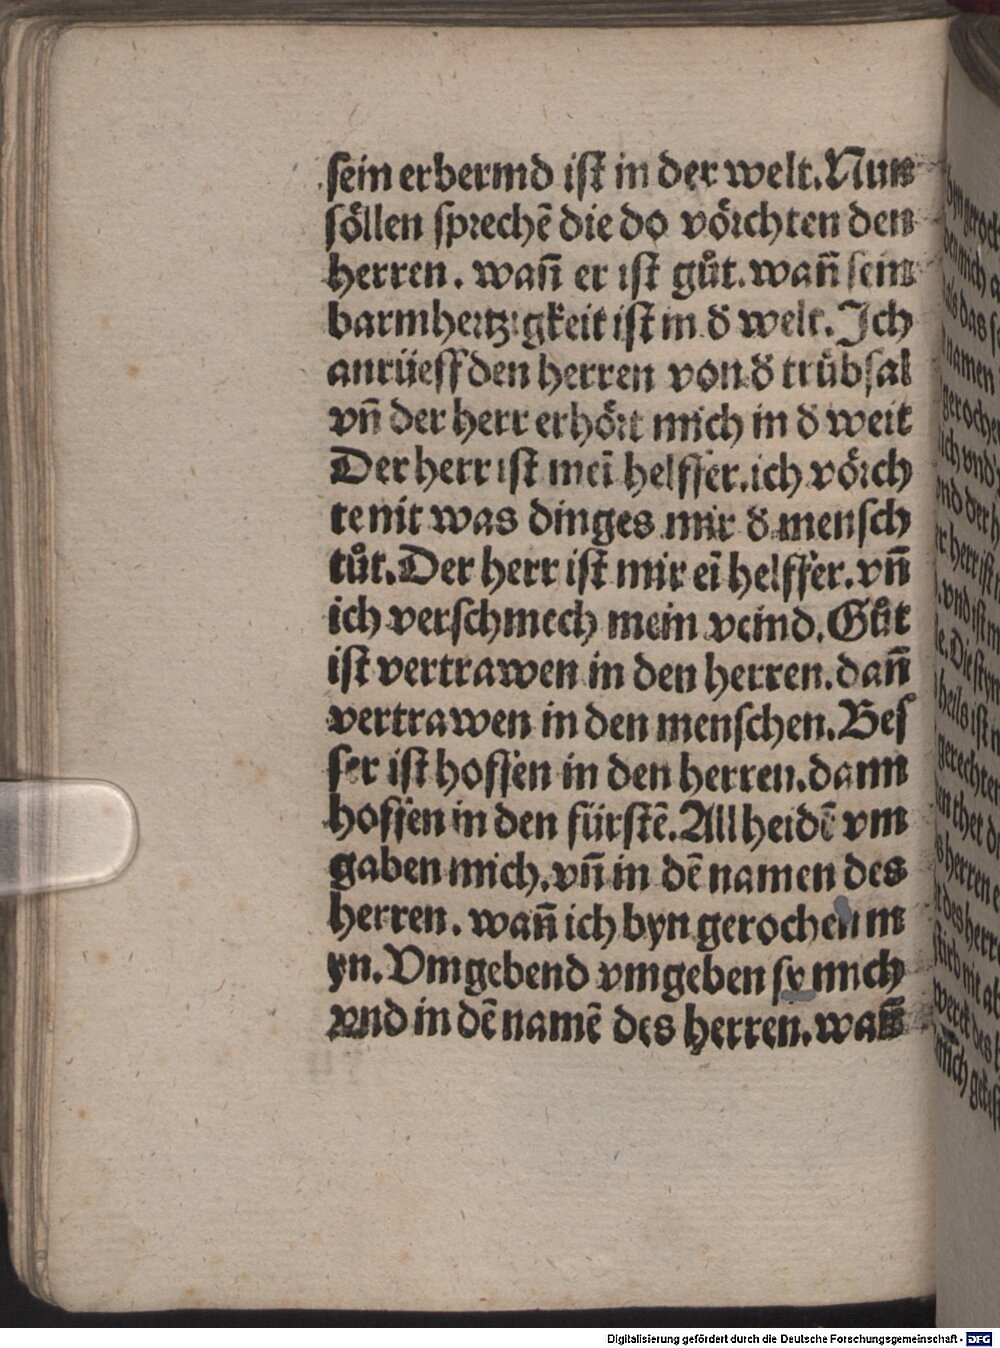 sein erbermd ist in der welt. Nun
söllen sprechē die do vörchten den
herren. wañ er ist gůt. wañ sein
barmhertzigkeit ist in d̕ welt. Ich
anrüeff den herren von d̕ trübsal
vñ der herr erhört mich in d̕ weit
Der herr ist meī helffer. ich vörch
te nit was dinges mir d̕ mensch
tůt. Der herr ist mir eī helffer. vñ
ich verschmech mein veind. Gůt
ist vertrawen in den herren. dañ
vertrawen in den menschen. Bes
ser ist hoffen in den herren. dann
hoffen in den fürstē. All heidē vm
gaben mich. vñ in dē namen des
herren. wañ ich byn gerochen in
yn. Vmgebend vmgeben sy mich
vnd in dē namē des herren. wañ
Digitalisierung gefördert durch die Deutsche Forschungsgemeinschaft - DFG